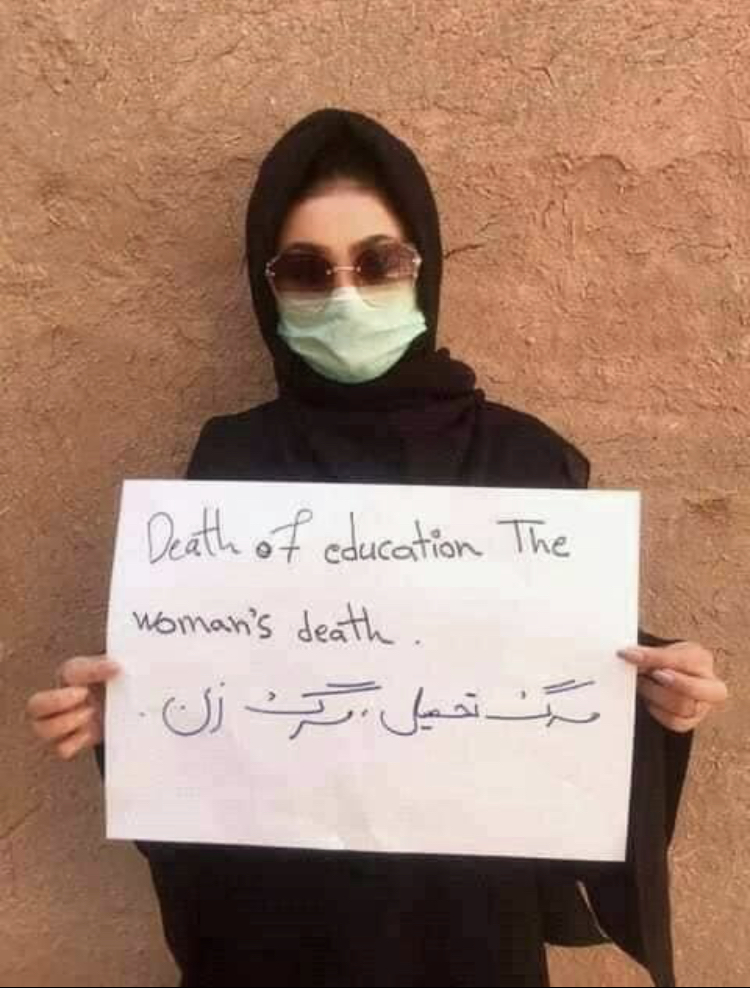 Death of education The
woman's death.
مرگ تحصیل، مرگ زن.